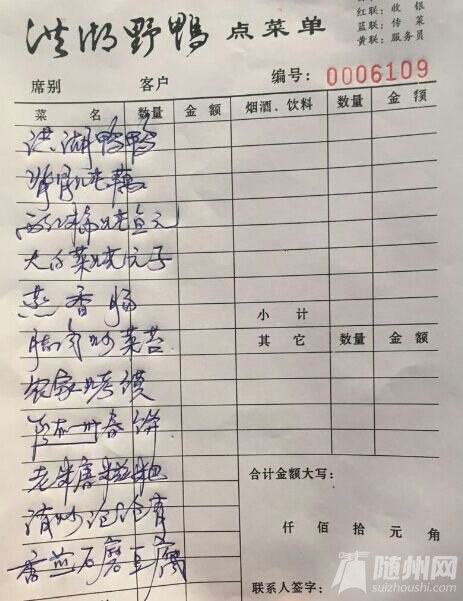 洪湖野鸭 点菜单
红联：收银
蓝联：传菜
黄联：服务员
席别 客户 编号：0006109
菜名 数量 金额 烟酒、饮料 数量 金额
洪湖野鸭
西红柿烧鱼元
大白菜烧元子
蒸香肠
小计
腊肉炒菜苔
其它 数量 金额
农家烤馍
春饼
老朱唐糍粑
合计金额大写：
清炒泡泡青
仟佰拾元角
香煎石磨豆腐
联系人签字：
随州网
suizhoushi.com